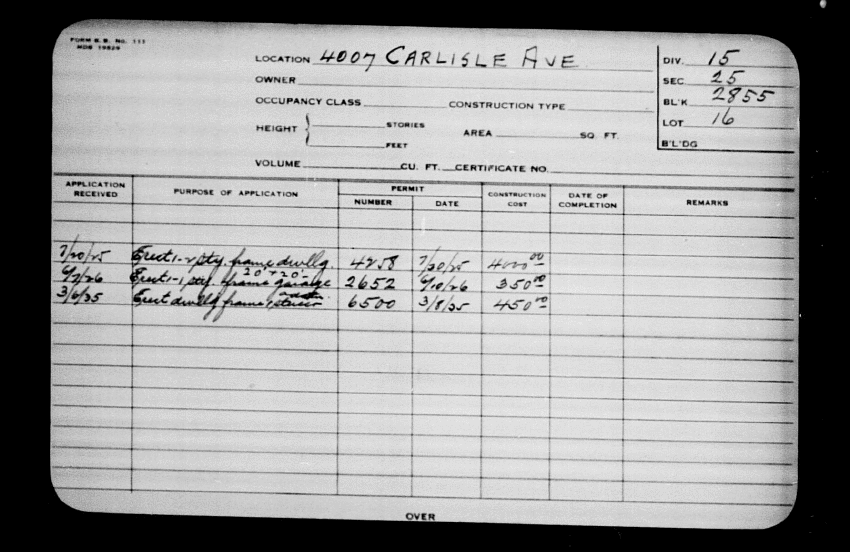 FORM B. B. No. 111
MDB 19829
LOCATION 4007 CARLISLE AVE
OWNER
OCCUPANCY CLASS CONSTRUCTION TYPE
HEIGHT { STORIES AREA SQ. FT.
FEET
VOLUME CU. FT. CERTIFICATE NO.
DIV. 15
SEC 25
BL'K 2855
LOT 16
B'L'DG
APPLICATION RECEIVED PURPOSE OF APPLICATION PERMIT NUMBER DATE CONSTRUCTION COST DATE OF COMPLETION REMARKS
7/20/25 Erect 1-2 sty. frame dwllg. 4258 7/20/25 4000 00
20' x 20'
6/7/26 Erect 1-1 sty. frame garage 2652 6/10/26 350 00
addtn.
3/6/35 Erect dwllg frame 6500 3/8/35 450 00
OVER